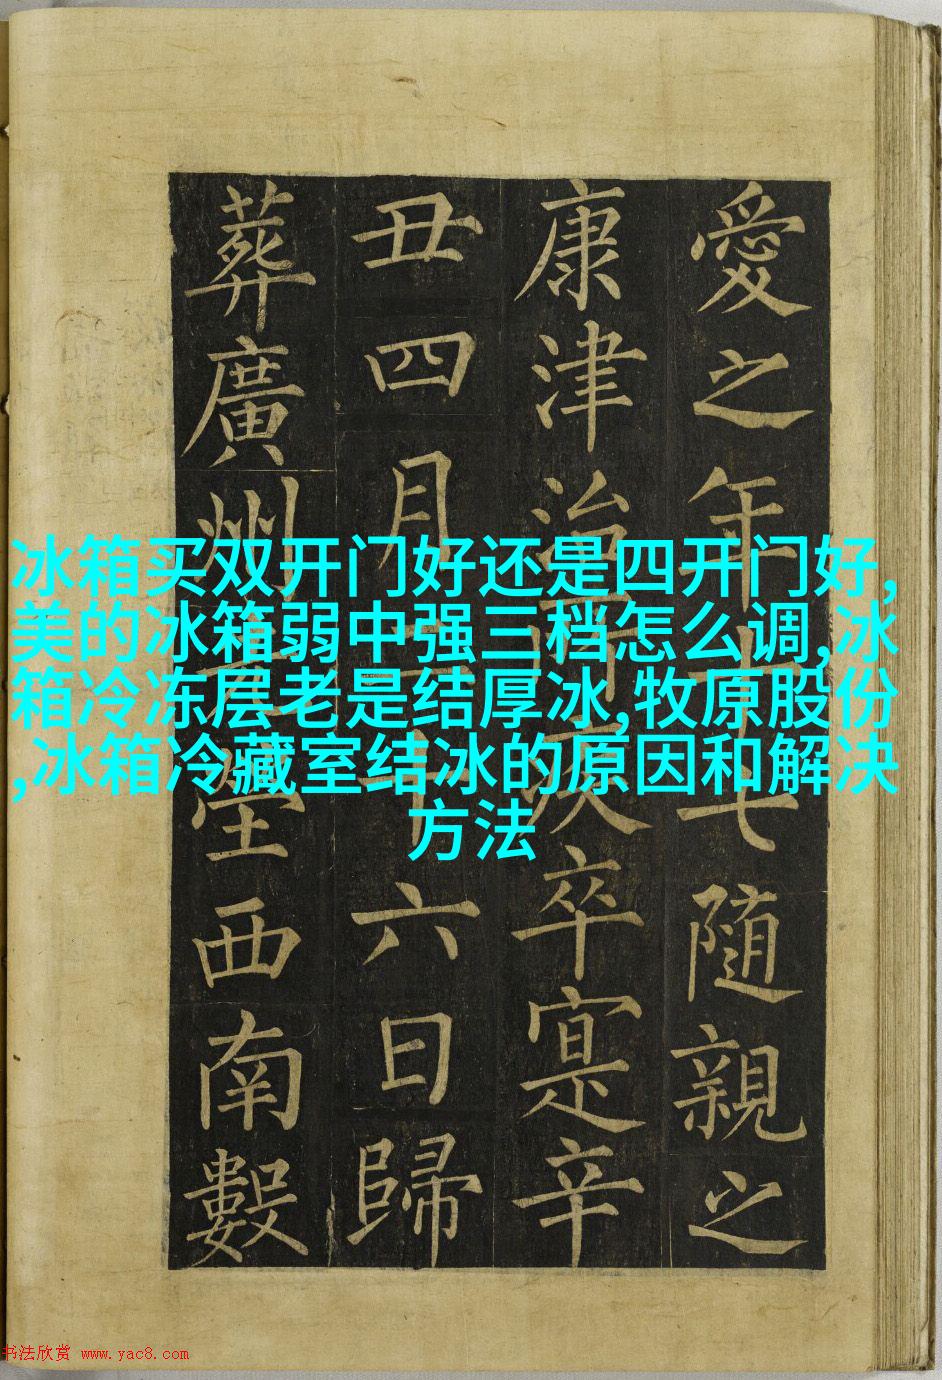 愛之年十七隨親之
康津治所疾卒寔辛
丑四月十六日歸
葬廣州西南數
冰箱买双开门好还是四开门好,
美的冰箱弱中强三档怎么调,冰
箱冷冻层老是结厚冰,牧原股份
,冰箱冷藏室结冰的原因和解决
方法
书法欣赏 www.yac8.com